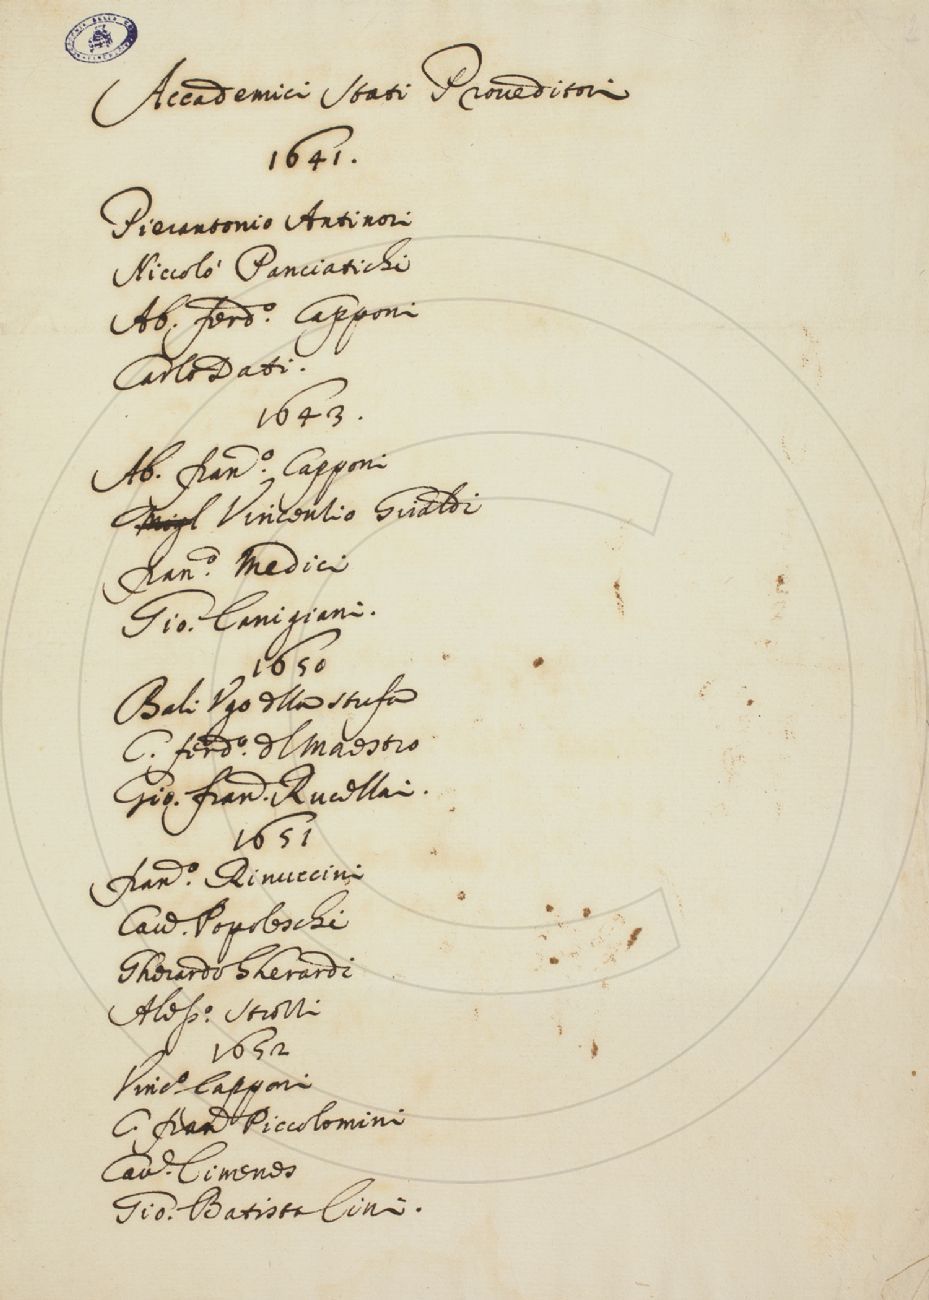 Accademici stati Proueditori
1641.
Pierantonio Antinori
Niccolò Panciatichi
Ab. ferd.º Capponi
Carlo Dati.
1643.
Ab. fran.º Capponi
Vincentio Giraldi
fran.º Medici
Gio. Canigiani.
1650
Bali Vgo della stufa
C. ferd.º del Maestro
Gio. fran.º Rucellai.
1651
fran.º Rinuccini
Cau. Popoleschi
Gherardo Gherardi
Aless.º Strozzi
1652
Vinc.º Capponi
C. fran Piccolomini
Cau. Cimenes
Gio. Batista Cini.